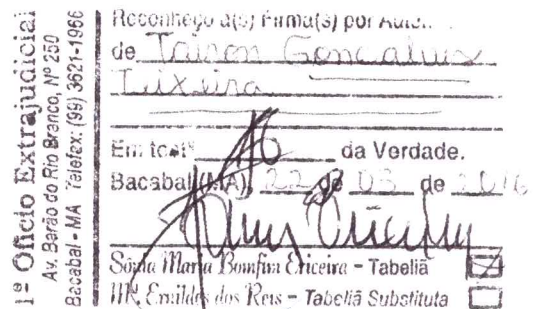 1º Ofício Extrajudicial
Av. Barão do Rio Branco, Nº 250
Bacabal - MA Telefax: (99) 3621-1966
Reconheço a(s) Firma(s) por
de Tairon Gonçalves
Teixeira
Em testº da Verdade.
Bacabal (MA), 22 de 03 de 2016
Sônia Maria Bomfim Ericeira - Tabeliã
Mª Emildes dos Reis - Tabeliã Substituta